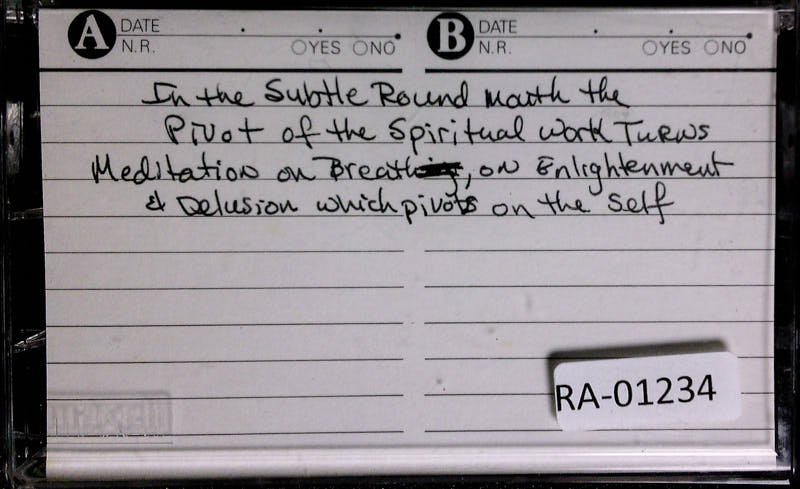 A DATE
N.R. YES NO
B DATE
N.R. YES NO
In the Subtle Round Mouth the
Pivot of the Spiritual Work Turns
Meditation on Breath, on Enlightenment
& Delusion which pivots on the Self
RA-01234